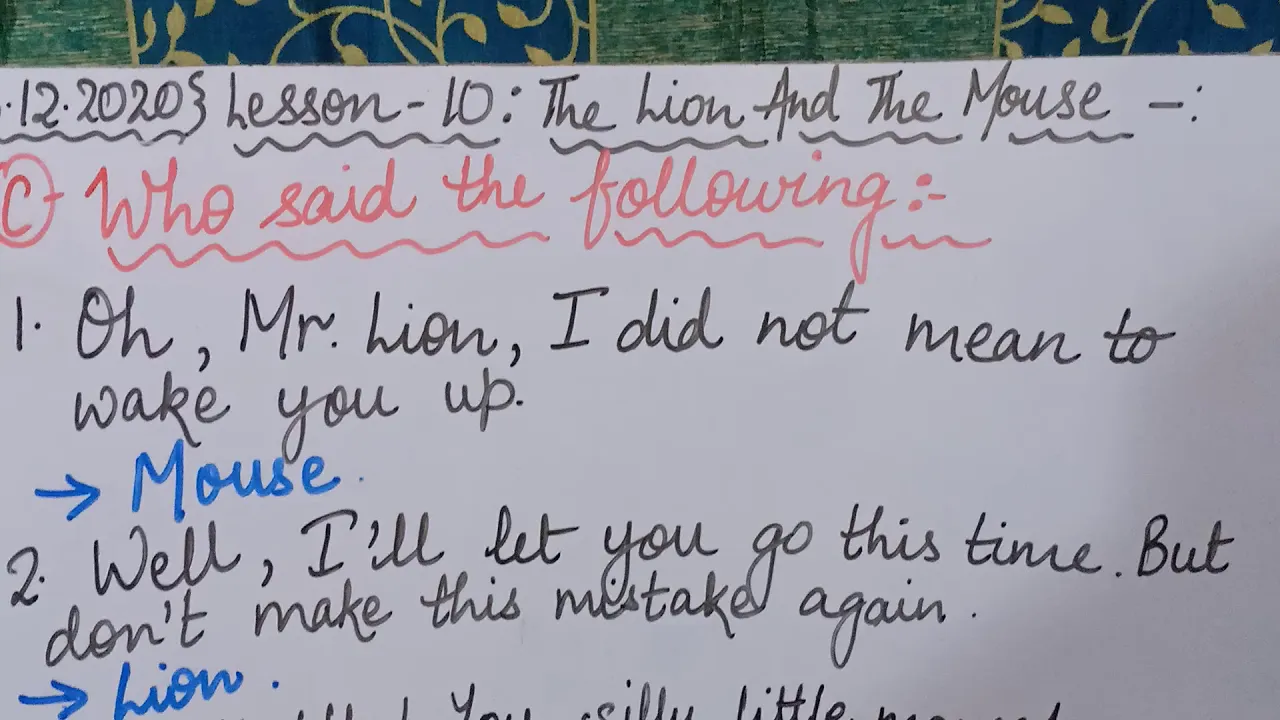 .12.2020} Lesson-10: The Lion And The Mouse -:
C Who said the following:-
1. Oh, Mr. Lion, I did not mean to
wake you up.
→ Mouse.
2. Well, I'll let you go this time. But
don't make this mistake again.
→ Lion.
You silly little